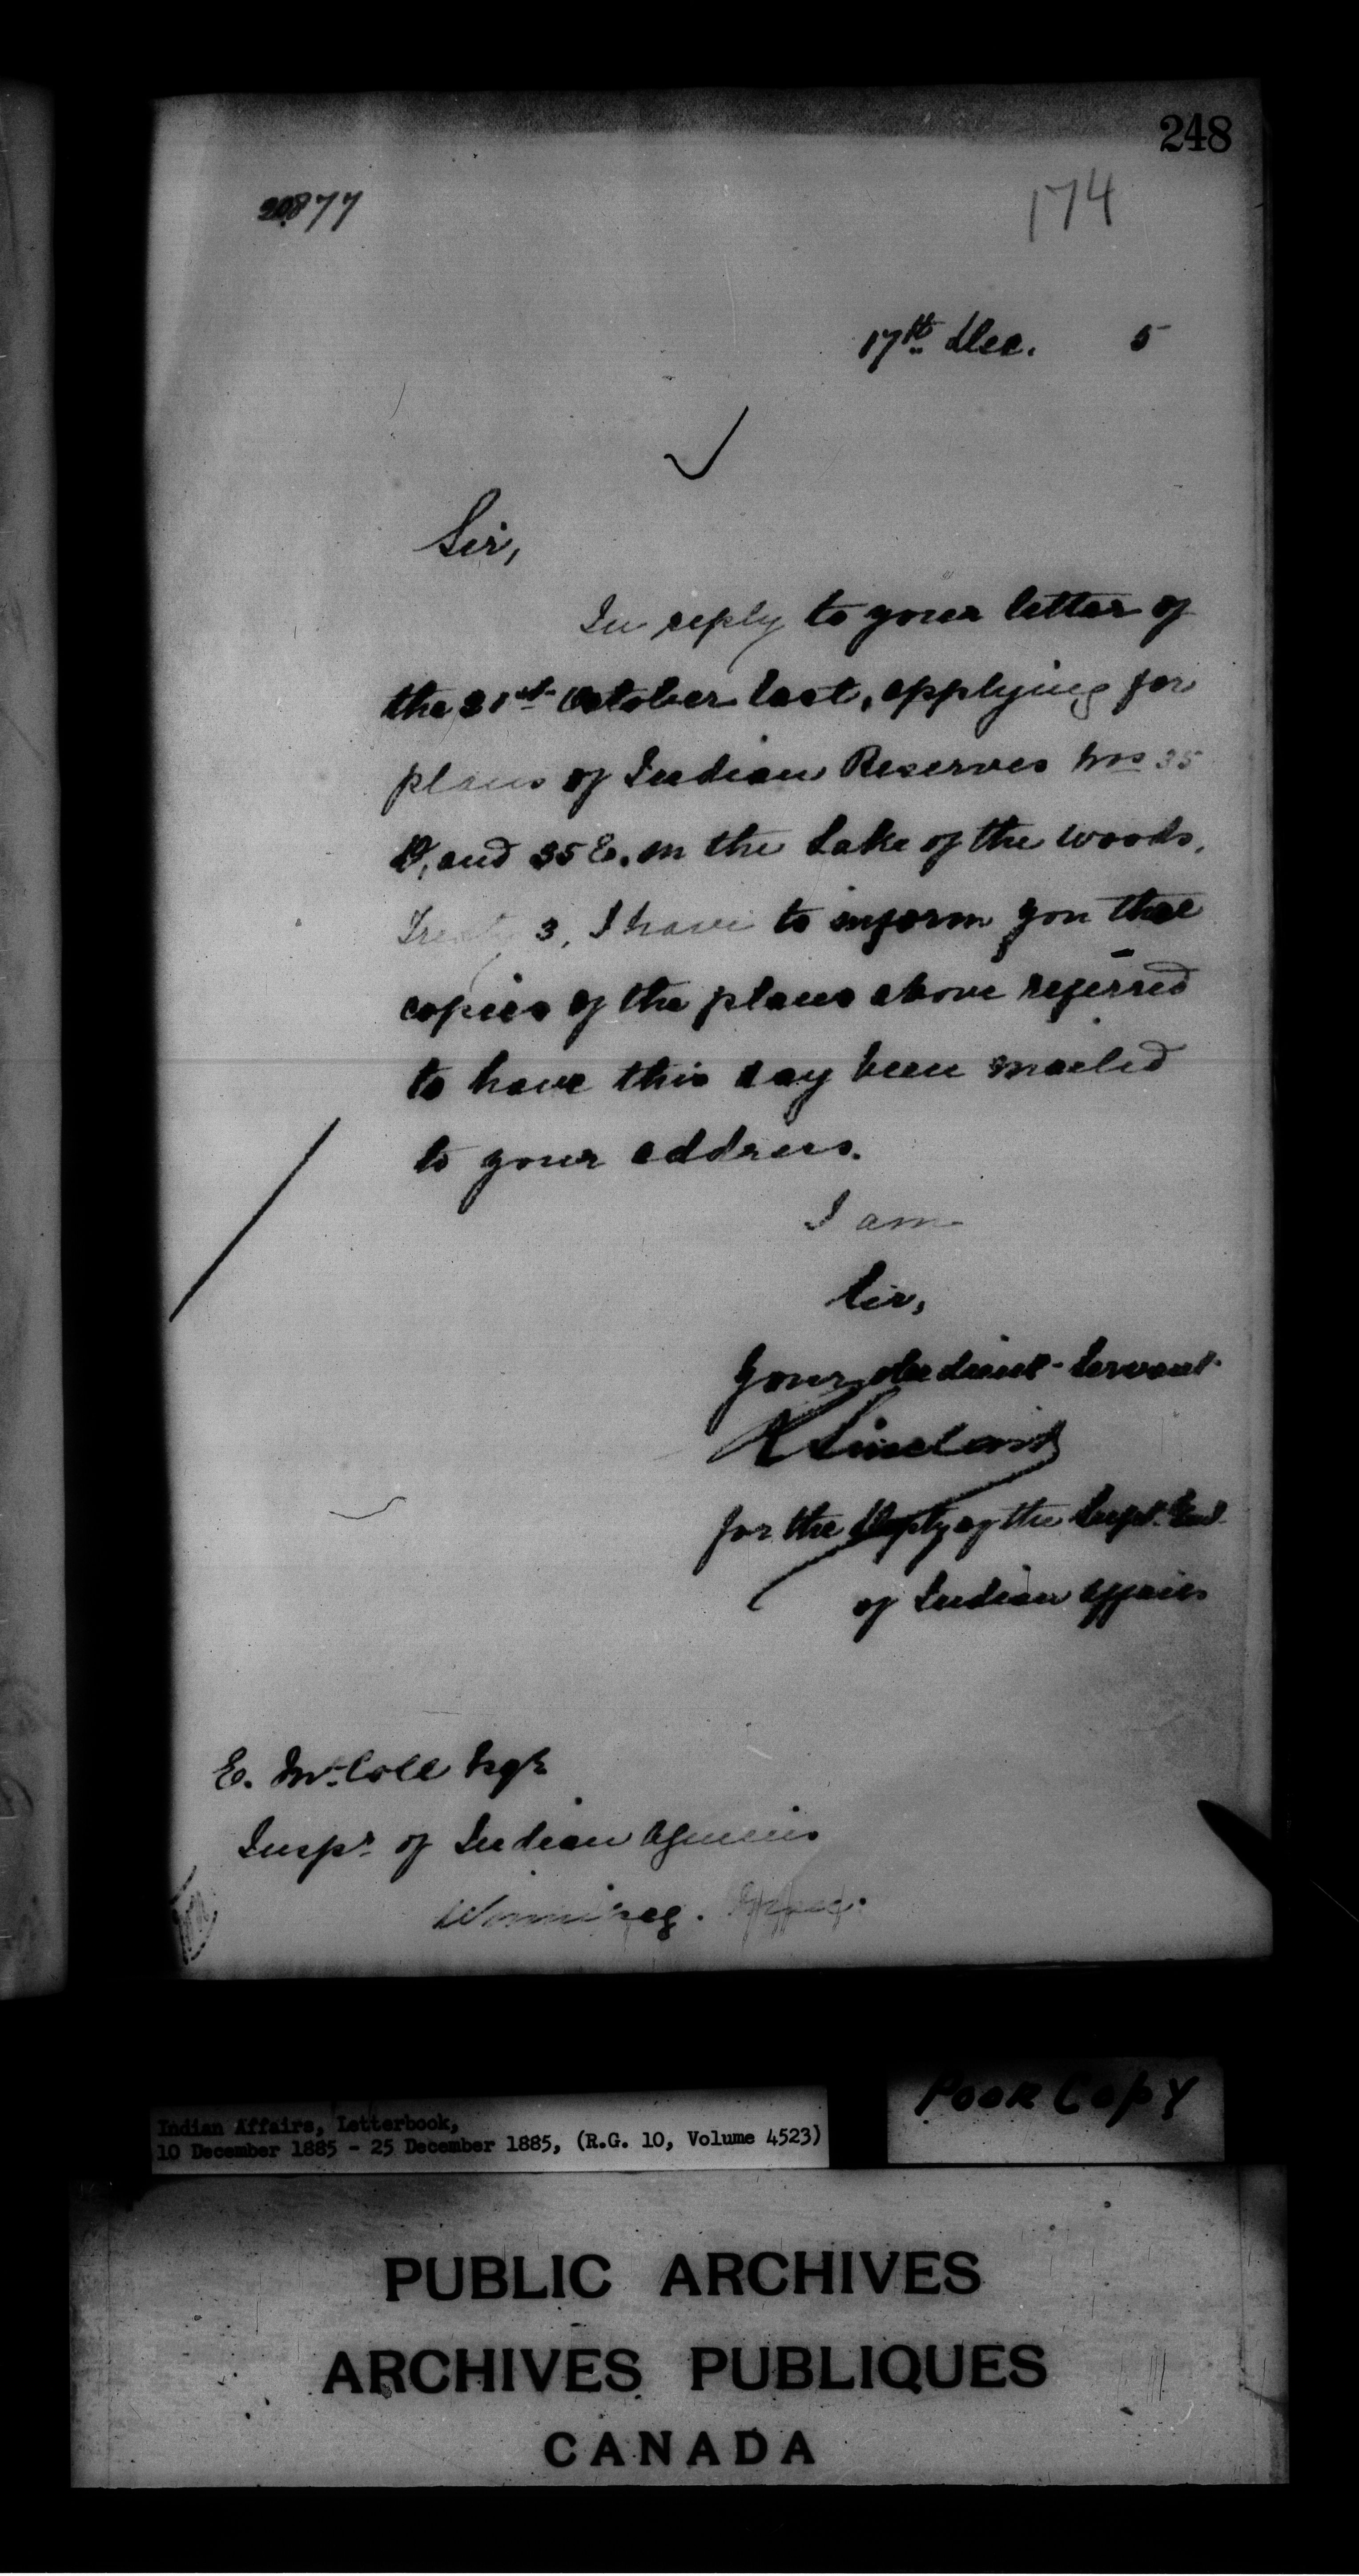 248
20877
174
17th Dec. 5
Sir,
In reply to your letter of
the 31st October last, applying for
plans of Indian Reserves Nos 35
D, and 35 E. on the Lake of the Woods,
Treaty 3, I have to inform you that
copies of the plans above referred
to have this day been mailed
to your address.
I am
Sir,
Your obedient Servant
R Sinclair
for the Deputy of the Supt. Genl
of Indian Affairs
E. McColl Esqr
Inspr. of Indian Agencies
Winnipeg.
Poor Copy
Indian Affairs, Letterbook,
10 December 1885 - 25 December 1885, (R.G. 10, Volume 4523)
PUBLIC ARCHIVES
ARCHIVES PUBLIQUES
CANADA